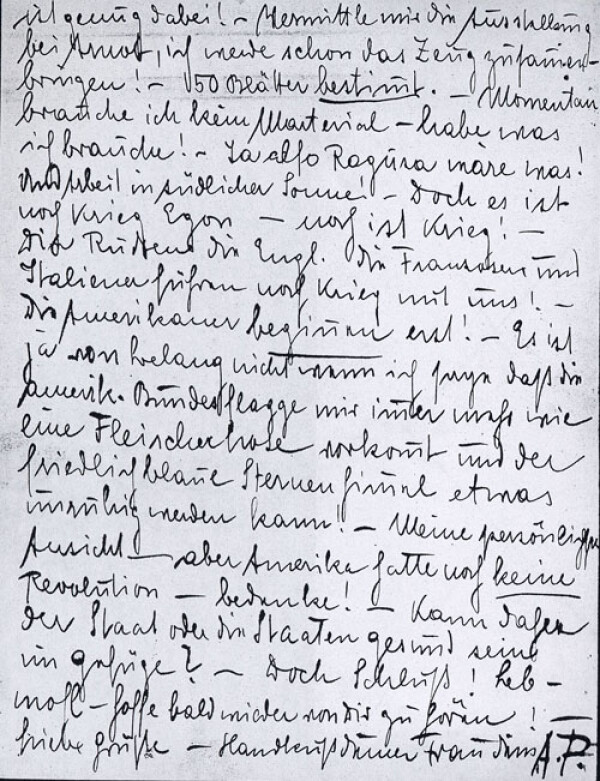 ist genug dabei! – Vermittle mir die Ausstellung
bei Arnot, ich werde schon das Zeug zusammen-
bringen! – 150 Blätter bestimmt. – Momentan
brauche ich kein Material – habe was
ich brauche! – Ja also Ragusa wäre was!
und Arbeit in südlicher Sonne! – Doch es ist
noch Krieg Egon – noch ist Krieg! –
Die Russen die Engl. die Franzosen und
Italiener führen noch Krieg mit uns! –
Die Amerikaner beginnen erst! – Es ist
ja von belang nicht wenn ich sage daß die
amerik. Bundesflagge mir immer mehr wie
eine Fleischerhose vorkomt und der
friedlich blaue Sternenhimmel etwas
unruhig werden kann! – Meine persönliche
Ansicht – aber Amerika hatte noch keine
Revolution – bedenke! – Kann daher
der Staat oder die Staaten gesund sein
im gefüge? – Doch Schluß! Leb –
wohl – hoffe bald wieder von Dir zu hören! –
Liebe Grüße – Handkuß deiner Frau dein A.P.